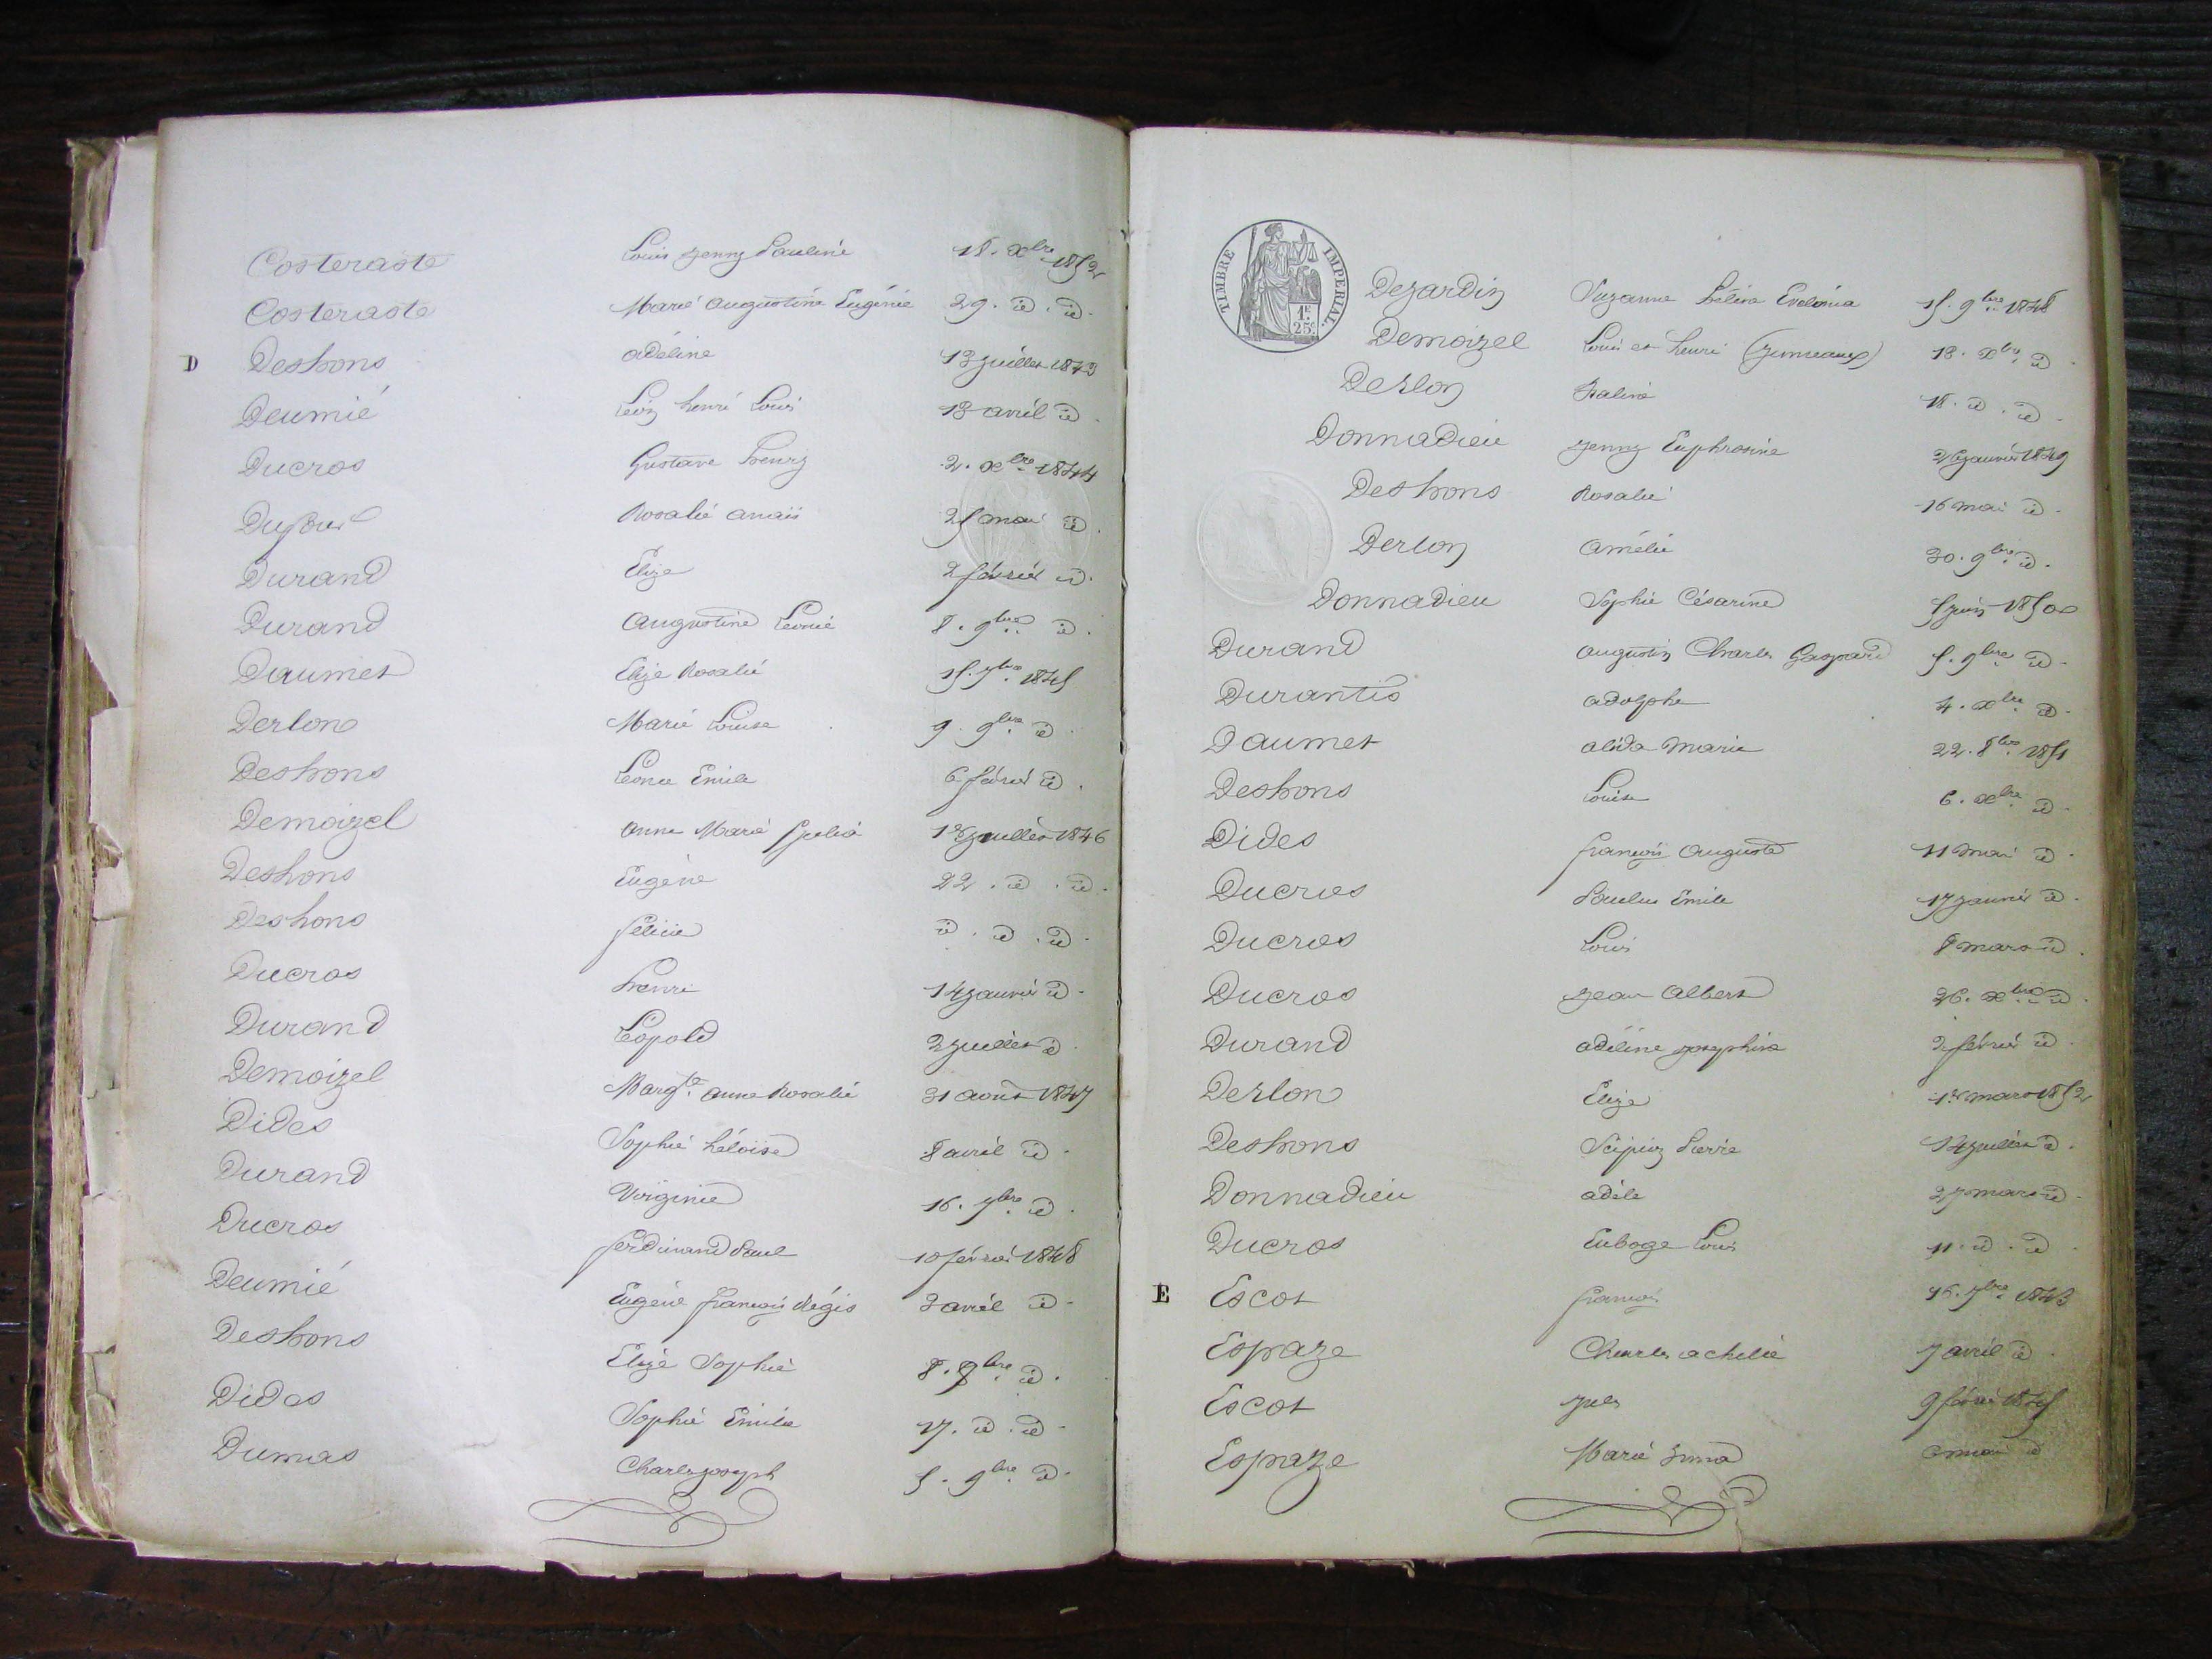 Costeraste Louis Jenny Pauline 18. Xbre 1852
Costeraste Marie Augustine Eugénie 29. id. id.
D Deshons Adéline 13 juillet 1843
Deumié Léon henri Louis 13 avril id.
Ducros Gustave henry 2. Xbre 1844
Rosalie anaïs 25 mai id.
Durand Elize 2 février id.
Durand Augustine Léonie 8. 9bre id.
Daumet Elize Rosalie 15. 7bre 1845
Derlon Marie Louise 9. 9bre id.
Deshons Léonie Emile 6 février id.
Demoizel Anne Marie Julie juillet 1846
Deshons Eugène 22. id. id.
Deshons félicie id. id. id.
Ducros henri 14 janvier id.
Durand Léopold 2 juillet id.
Demoizel Margte. Anne Rosalie 31 août 1847
Dides Sophie héloïse 8 avril id.
Durand Virginie 16. 7bre id.
Ducros ferdinand Paul 10 février 1848
Deumié Eugène françois Régis 3 avril id.
Deshons Elize Sophie 8. bre id.
Dides Sophie Emilie 17. id. id.
Dumas Charles joseph 5. 9bre id.
TIMBRE IMPERIAL.
1F.
25c.
Dezardin Suzanne hélène 15. 9bre 1848
Demoizel Louis et henri (jumeaux) 18. Xbre id.
Derlon 18. id. id.
Donnadieu Jenny Euphrosine 26 janvier 1849
Deshons Rosalie 16 mai id.
Derlon Amélie 30. 9bre id.
Donnadieu Sophie Césarine 5 juin 1850
Durand Augustin Charles Gaspard 5. 9bre id.
Durantis adolphe 4. Xbre id.
Daumet alida Marie 22. 8bre 1851
Deshons Louise 6. Xbre id.
Dides françois Auguste 11 mai id.
Ducros Paulin Emile 17 janvier id.
Ducros Louis 8 mars id.
Ducros Jean Albert 26. Xbre id.
Durand adéline joséphine 2 février id.
Derlon Elize 1er mars 1852
Deshons Scipion Pierre 14 juillet id.
Donnadieu adèle 27 mars id.
Ducros Louis 11. id. id.
E Escot françois 16. 7bre 1843
Espaze Charles achille 7 avril id.
Escot Jules 9 février 1845
Espaze Marie mai id